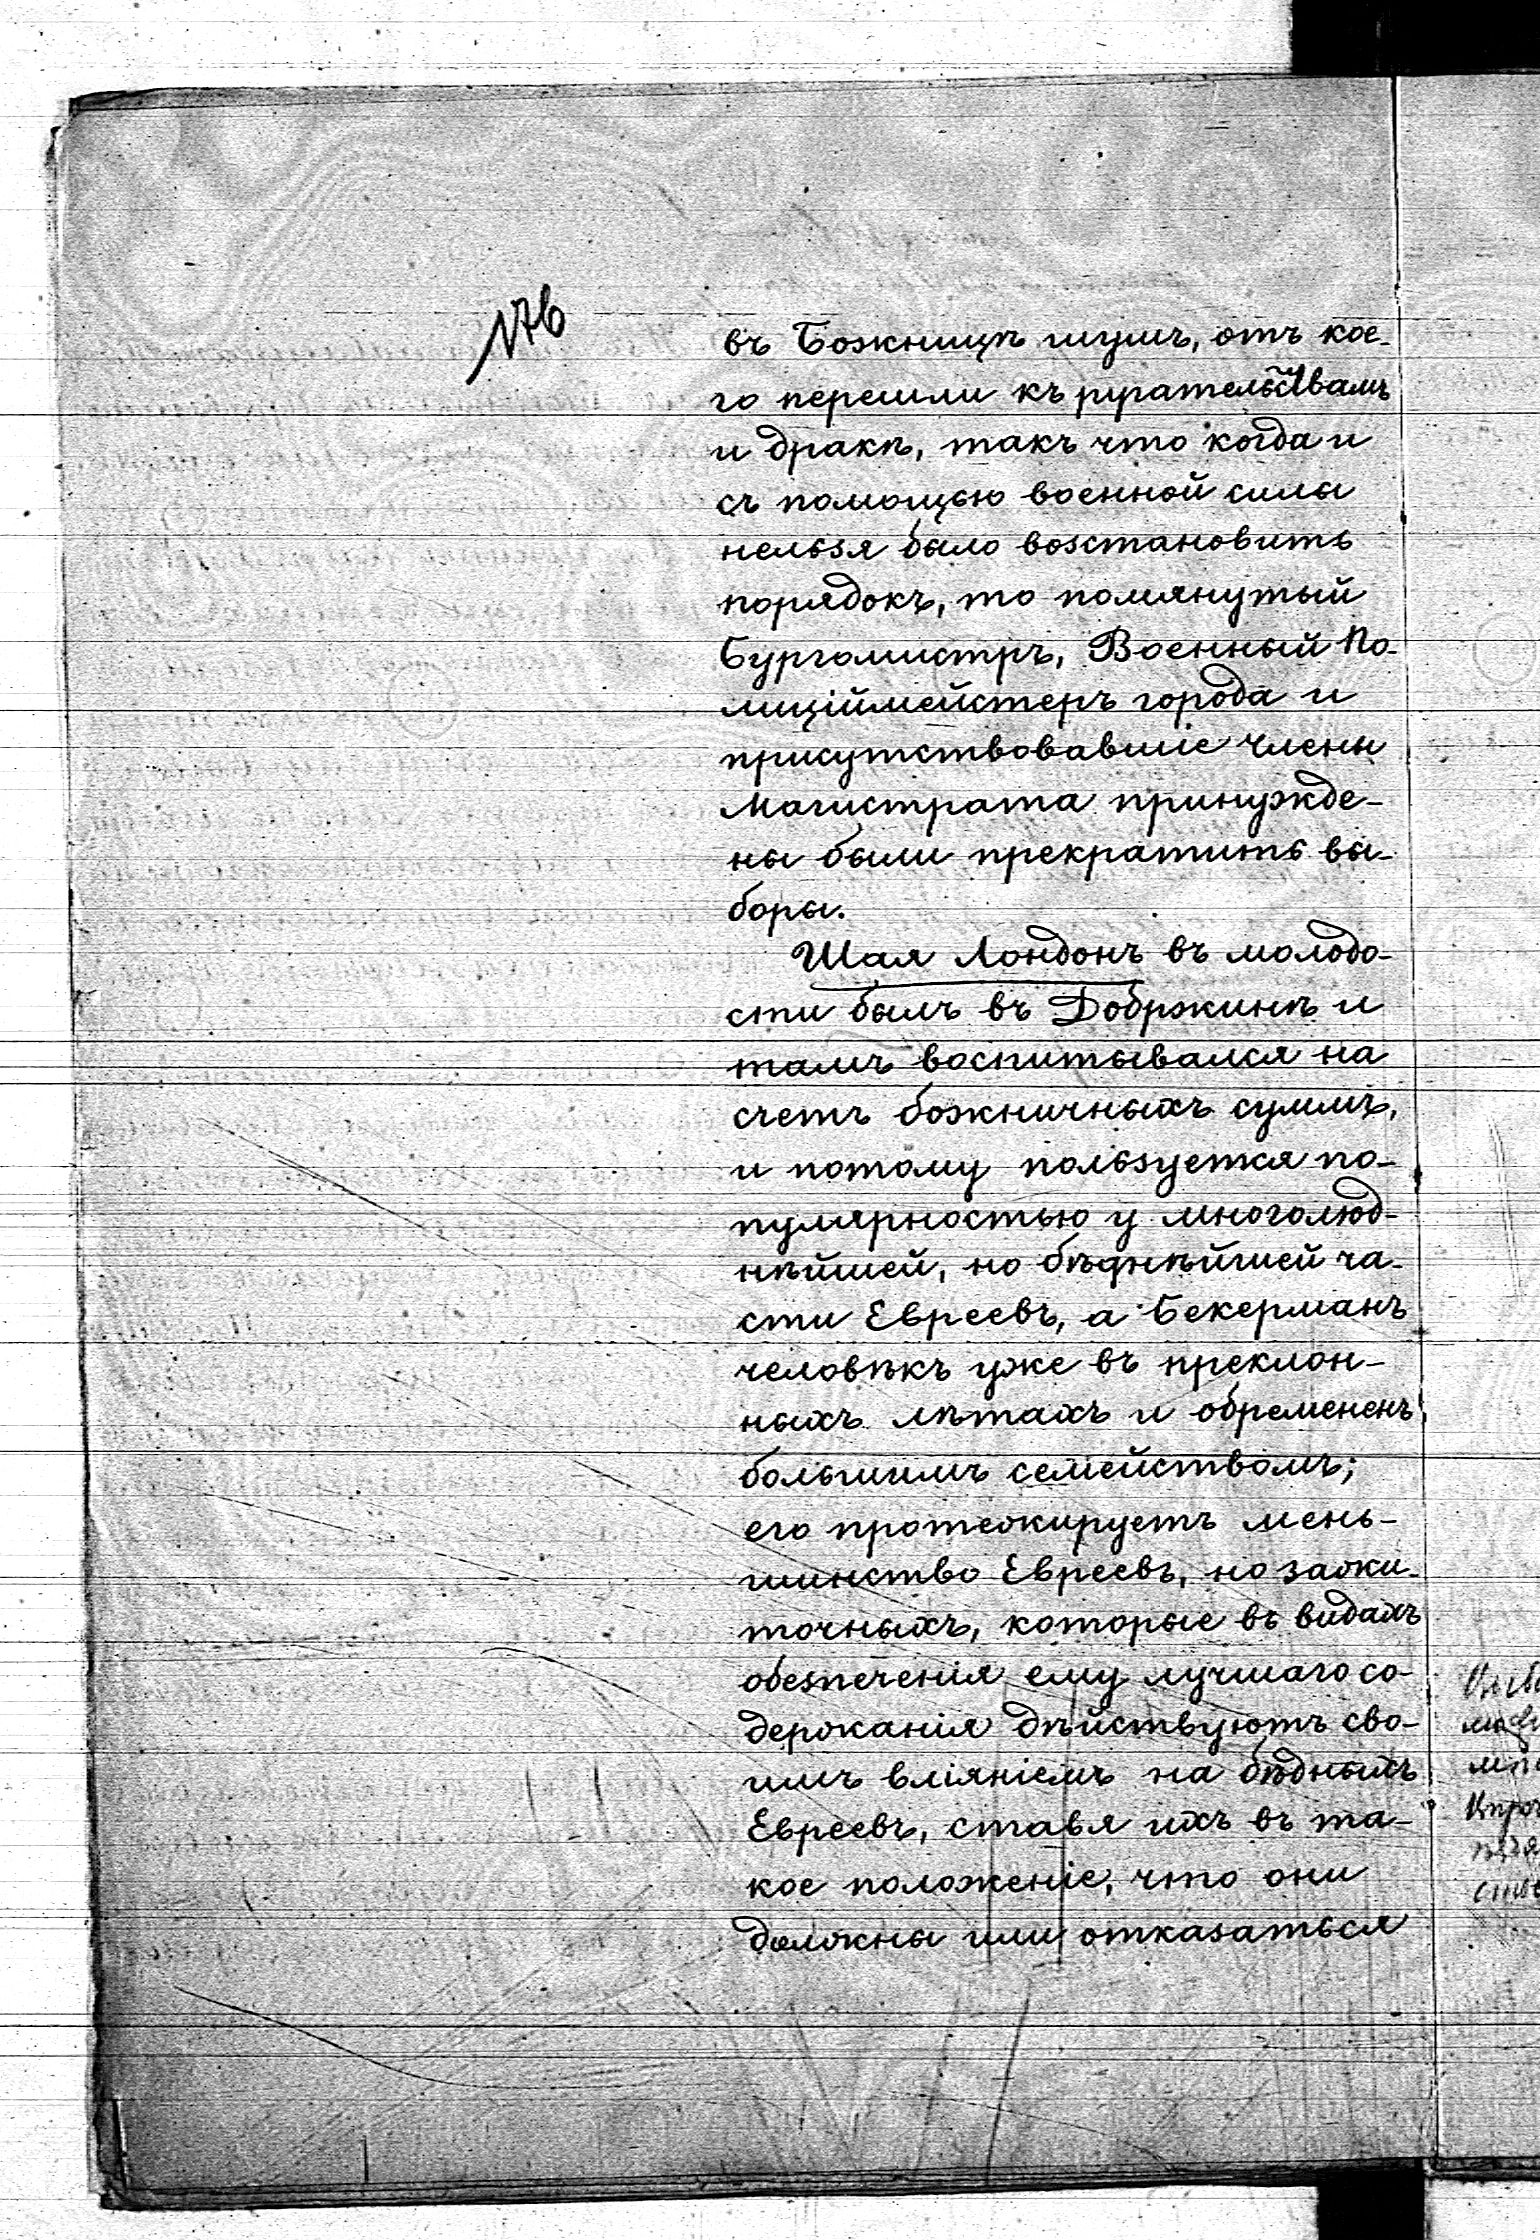 176
въ Божницѣ шумъ, отъ кое-
го перешли къ ругательствамъ
и дракѣ, такъ что когда и
съ помощью военной силы
нельзя было возстановить
порядокъ, то помянутый
Бургомистръ, Военный По-
лиціймейстеръ города и
присутствовавшіе члены
Магистрата принужде-
ны были прекратить вы-
боры.
Шая Лондонъ въ молодо-
сти былъ въ Добржинѣ и
тамъ воспитывался на
счетъ божничныхъ суммъ,
и потому пользуется по-
пулярностью у многолюд-
нѣйшей, но бѣднѣйшей ча-
сти Евреевъ, а Бекерманъ
человѣкъ уже въ преклон-
ныхъ лѣтахъ и обремененъ
большимъ семействомъ;
его протежируетъ мень-
шинство Евреевъ, но зажи-
точныхъ, которые въ видахъ
обезпеченія ему лучшаго со-
держанія дѣйствуютъ сво-
имъ вліяніемъ на бѣдныхъ
Евреевъ, ставя ихъ въ та-
кое положеніе, что они
должны или отказаться